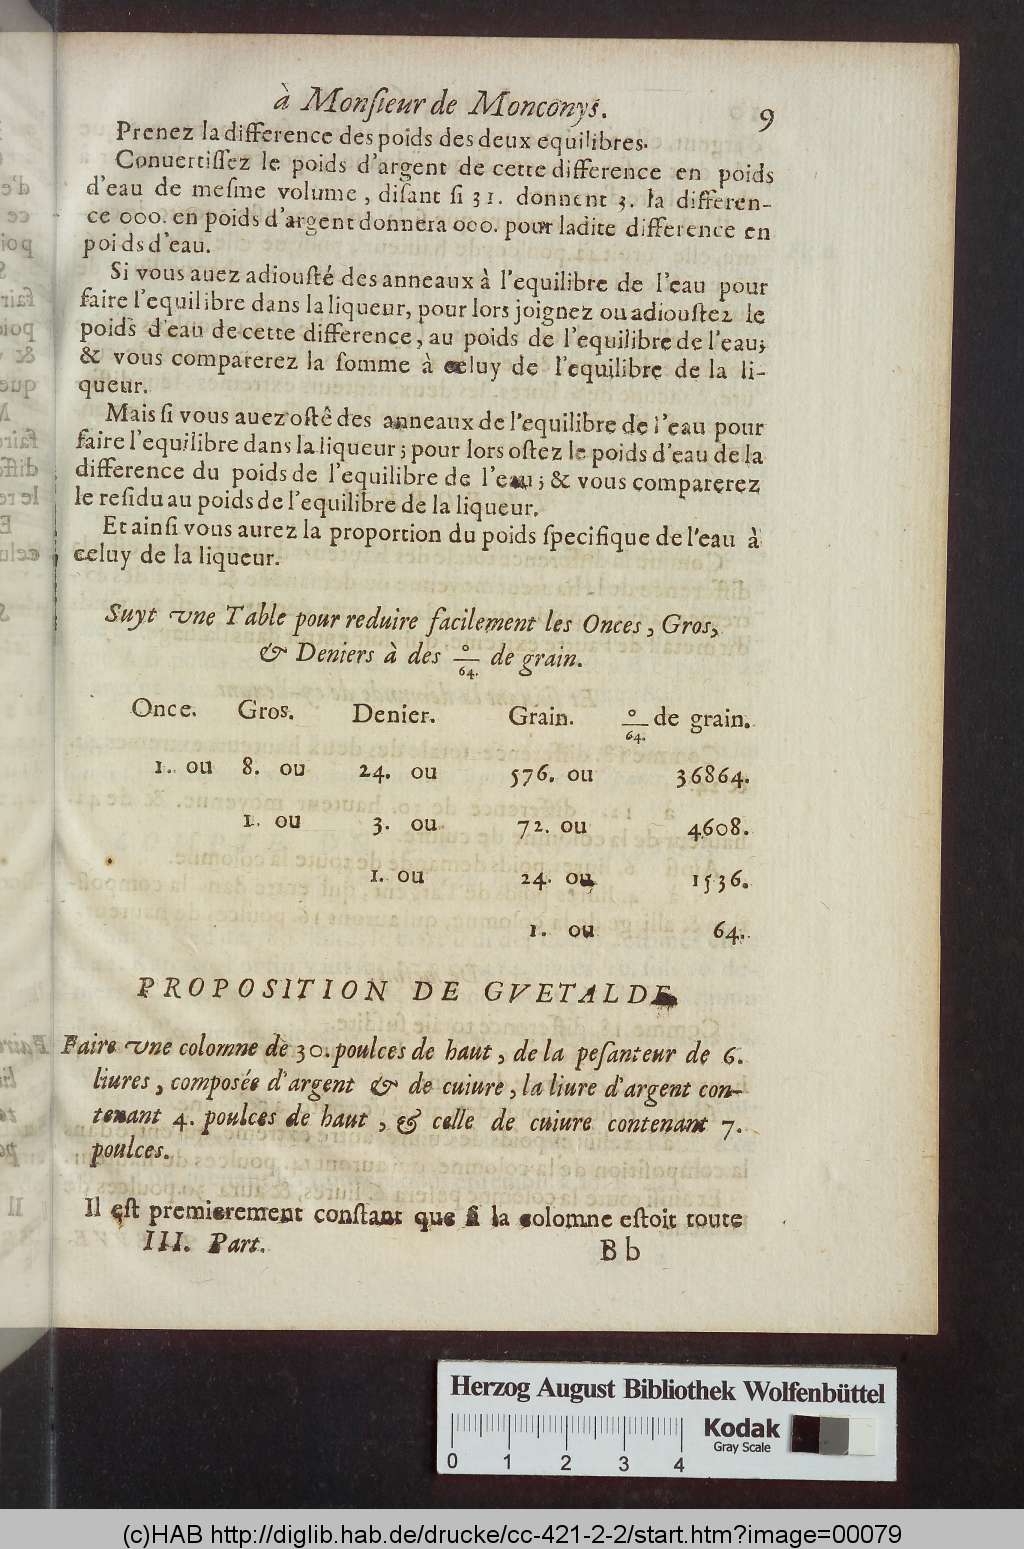 à Monſieur de Monconys. 9
Prenez la difference des poids des deux equilibres.
Conuertiſſez le poids d'argent de cette difference en poids
d'eau de meſme volume, diſant ſi 31. donnent 3. la differen-
ce 000. en poids d'argent donnera 000. pour ladite difference en
poids d'eau.
Si vous auez adiouſté des anneaux à l'equilibre de l'eau pour
faire l'equilibre dans la liqueur, pour lors joignez ou adiouſtez le
poids d'eau de cette difference, au poids de l'equilibre de l'eau;
& vous comparerez la ſomme à celuy de l'equilibre de la li-
queur.
Mais ſi vous auez oſté des anneaux de l'equilibre de l'eau pour
faire l'equilibre dans la liqueur; pour lors oſtez le poids d'eau de la
difference du poids de l'equilibre de l'eau; & vous comparerez
le reſidu au poids de l'equilibre de la liqueur.
Et ainſi vous aurez la proportion du poids ſpecifique de l'eau à
celuy de la liqueur.
Suyt vne Table pour reduire facilement les Onces, Gros,
& Deniers à des 0/64. de grain.
Once. Gros. Denier. Grain. 0/64. de grain.
1. ou 8. ou 24. ou 576. ou 36864.
1. ou 3. ou 72. ou 4608.
1. ou 24. ou 1536.
1. ou 64.
PROPOSITION DE GVETALDE
Faire vne colomne de 30. poulces de haut, de la peſanteur de 6.
liures, composée d'argent & de cuiure, la liure d'argent con-
tenant 4. poulces de haut, & celle de cuiure contenant 7.
poulces.
Il eſt premierement conſtant que ſi la colomne eſtoit toute
III. Part. Bb
Herzog August Bibliothek Wolfenbüttel
Kodak
Gray Scale
0 1 2 3 4
(c)HAB http://diglib.hab.de/drucke/cc-421-2-2/start.htm?image=00079